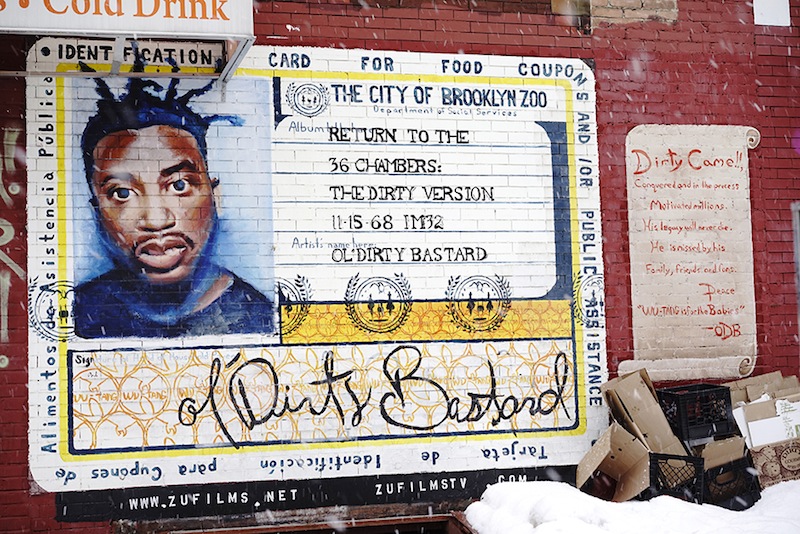 s • Cold Drink
IDENTIFICATION CARD FOR FOOD COUPONS AND /OR PUBLIC ASSISTANCE
Alimentos de Asistencia Pública
THE CITY OF BROOKLYN ZOO
Department of Social Services
Album
RETURN TO THE
36 CHAMBERS:
THE DIRTY VERSION
11-15-68 1M32
Artist's name here:
OL'DIRTY BASTARD
Sign
ol' Dirty Bastard
Tarjeta de Identificación para Cupones de
WWW.ZUFILMS.NET ZUFILMSTV COM
Dirty Came!!
Conquered and in the process
Motivated millions.
His legacy will never die.
He is missed by his
Family, friends and fans.
Peace
"WU-TANG is for the Babies"
-ODB